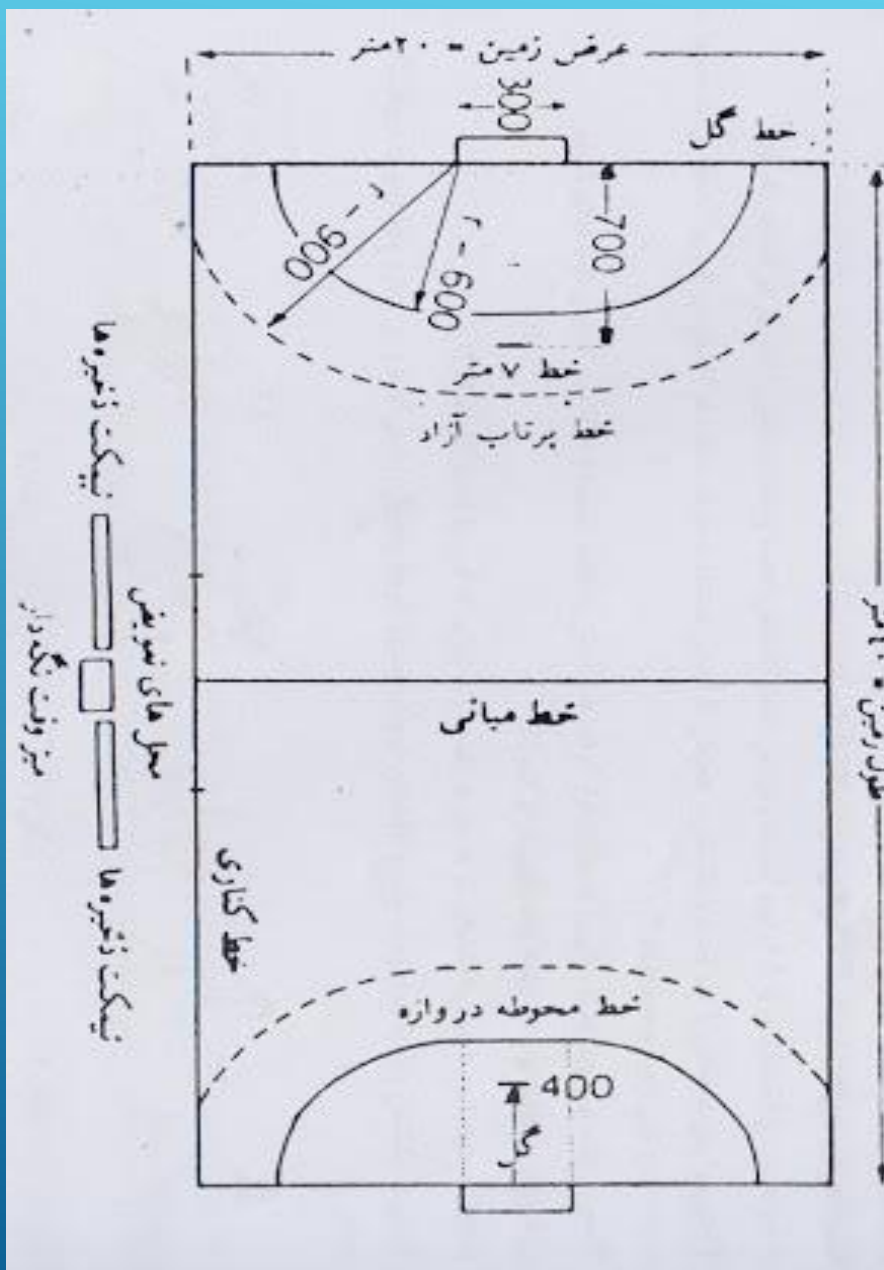 عرض زمین = ۲۰ متر
300
خط گل
r - 900
r - 600
700
خط ۷ متر
خط پرتاب آزاد
طول زمین = ۴۰ متر
نیمکت ذخیره ها
محل های تعویض
میز وقت نگه دار
نیمکت ذخیره ها
خط میانی
خط کناری
خط محوطه دروازه
400
گل